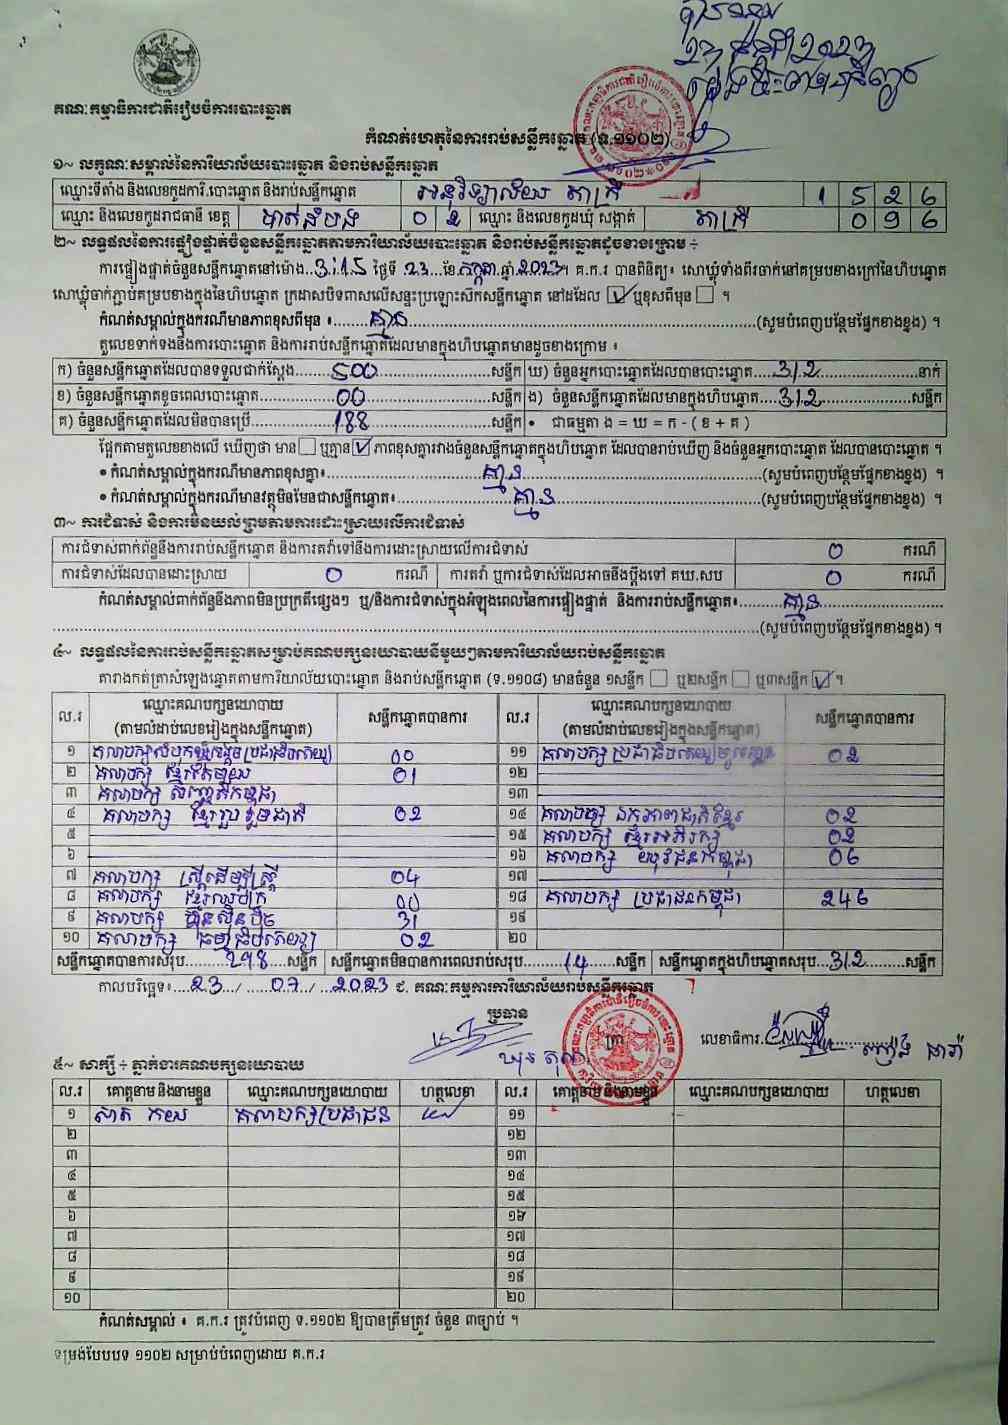 គណៈកម្មាធិការជាតិរៀបចំការបោះឆ្នោត
កំណត់ហេតុនៃការរាប់សន្លឹកឆ្នោត (ទ.១១០២)
១~ លក្ខណៈសម្គាល់នៃការិយាល័យបោះឆ្នោត និងរាប់សន្លឹកឆ្នោត
ឈ្មោះទីតាំង និងលេខកូដការិ.បោះឆ្នោត និងរាប់សន្លឹកឆ្នោត អនុវិទ្យាល័យ តាគ្រី 1 5 2 6
ឈ្មោះ និងលេខកូដរាជធានី ខេត្ត បាត់ដំបង 0 2 ឈ្មោះ និងលេខកូដឃុំ សង្កាត់ តាគ្រី 0 9 6
២~ លទ្ធផលនៃការផ្ទៀងផ្ទាត់ចំនួនសន្លឹកឆ្នោតតាមការិយាល័យបោះឆ្នោត និងរាប់សន្លឹកឆ្នោតដូចខាងក្រោម ÷
ការផ្ទៀងផ្ទាត់ចំនួនសន្លឹកឆ្នោតនៅម៉ោង 3:15 ថ្ងៃទី 23 ខែ កក្កដា ឆ្នាំ 2023 ។ គ.ក.រ បានពិនិត្យ៖ សោឃ្លុំទាំងពីរចាក់នៅគម្របខាងក្រៅនៃហិបឆ្នោត
សោឃ្លុំចាក់ភ្ជាប់គម្របខាងក្នុងនៃហិបឆ្នោត ក្រដាសបិទពាសលើសន្ទះប្រឡោះសឹកសន្លឹកឆ្នោត នៅដដែល ☑ ឬខុសពីមុន ☐ ។
កំណត់សម្គាល់ក្នុងករណីមានភាពខុសពីមុន ៖ គ្មាន (សូមបំពេញបន្ថែមផ្នែកខាងខ្នង) ។
តួលេខទាក់ទងនឹងការបោះឆ្នោត និងការរាប់សន្លឹកឆ្នោតដែលមានក្នុងហិបឆ្នោតមានដូចខាងក្រោម ៖
ក) ចំនួនសន្លឹកឆ្នោតដែលបានទទួលជាក់ស្តែង 500 សន្លឹក ឃ) ចំនួនអ្នកបោះឆ្នោតដែលបានបោះឆ្នោត 312 នាក់
ខ) ចំនួនសន្លឹកឆ្នោតខូចពេលបោះឆ្នោត 00 សន្លឹក ង) ចំនួនសន្លឹកឆ្នោតដែលមានក្នុងហិបឆ្នោត 312 សន្លឹក
គ) ចំនួនសន្លឹកឆ្នោតដែលមិនបានប្រើ 188 សន្លឹក • ជាធម្មតា ង = ឃ = ក - ( ខ + គ )
ផ្អែកតាមតួលេខខាងលើ ឃើញថា មាន ☐ ឬគ្មាន ☑ ភាពខុសគ្នារវាងចំនួនសន្លឹកឆ្នោតក្នុងហិបឆ្នោត ដែលបានរាប់ឃើញ និងចំនួនអ្នកបោះឆ្នោត ដែលបានបោះឆ្នោត ។
• កំណត់សម្គាល់ក្នុងករណីមានភាពខុសគ្នា៖ គ្មាន (សូមបំពេញបន្ថែមផ្នែកខាងខ្នង) ។
• កំណត់សម្គាល់ក្នុងករណីមានវត្ថុមិនមែនជាសន្លឹកឆ្នោត៖ គ្មាន (សូមបំពេញបន្ថែមផ្នែកខាងខ្នង) ។
៣~ ការជំទាស់ និងការមិនយល់ព្រមតាមការដោះស្រាយលើការជំទាស់
ការជំទាស់ពាក់ព័ន្ធនឹងការរាប់សន្លឹកឆ្នោត និងការតវ៉ាទៅនឹងការដោះស្រាយលើការជំទាស់ 0 ករណី
ការជំទាស់ដែលបានដោះស្រាយ 0 ករណី ការតវ៉ា ឬការជំទាស់ដែលអាចនឹងប្តឹងទៅ គឃ.សប 0 ករណី
កំណត់សម្គាល់ពាក់ព័ន្ធនឹងភាពមិនប្រក្រតីផ្សេងៗ ឬ/និងការជំទាស់ក្នុងអំឡុងពេលនៃការផ្ទៀងផ្ទាត់ និងការរាប់សន្លឹកឆ្នោត៖ គ្មាន
(សូមបំពេញបន្ថែមផ្នែកខាងខ្នង) ។
៤~ លទ្ធផលនៃការរាប់សន្លឹកឆ្នោតសម្រាប់គណបក្សនយោបាយនីមួយៗតាមការិយាល័យរាប់សន្លឹកឆ្នោត
តារាងកត់ត្រាសំឡេងឆ្នោតតាមការិយាល័យបោះឆ្នោត និងរាប់សន្លឹកឆ្នោត (ទ.១១០៨) មានចំនួន ១សន្លឹក ☐ ឬ២សន្លឹក ☐ ឬ៣សន្លឹក ☑ ។
ល.រ ឈ្មោះគណបក្សនយោបាយ (តាមលំដាប់លេខរៀងក្នុងសន្លឹកឆ្នោត) សន្លឹកឆ្នោតបានការ ល.រ ឈ្មោះគណបក្សនយោបាយ (តាមលំដាប់លេខរៀងក្នុងសន្លឹកឆ្នោត) សន្លឹកឆ្នោតបានការ
១ 00 ១១ គណបក្ស 02
២ គណបក្ស ខ្មែរតែមួយ 01 ១២
៣ គណបក្ស ១៣
៤ គណបក្ស ខ្មែររួបរួមជាតិ 02 ១៤ គណបក្ស ឯកភាពជាតិខ្មែរ 02
៥ ១៥ គណបក្ស ខ្មែរអភិរក្ស 02
៦ ១៦ គណបក្ស យុវជនកម្ពុជា 06
៧ គណបក្ស ស្ត្រីដើម្បីស្ត្រី 04 ១៧
៨ គណបក្ស 00 ១៨ គណបក្ស ប្រជាជនកម្ពុជា 246
៩ គណបក្ស ហ៊្វុនស៊ិនប៉ិច 31 ១៩
១០ គណបក្ស ធម្មាធិបតេយ្យ 02 ២០
សន្លឹកឆ្នោតបានការសរុប 298 សន្លឹក សន្លឹកឆ្នោតមិនបានការពេលរាប់សរុប 14 សន្លឹក សន្លឹកឆ្នោតក្នុងហិបឆ្នោតសរុប 312 សន្លឹក
កាលបរិច្ឆេទ៖ 23 / 07 / 2023 ជ. គណៈកម្មការការិយាល័យរាប់សន្លឹកឆ្នោត
ប្រធាន
លេខាធិការ
៥~ សាក្សី ÷ ភ្នាក់ងារគណបក្សនយោបាយ
ល.រ គោត្តនាម និងនាមខ្លួន ឈ្មោះគណបក្សនយោបាយ ហត្ថលេខា ល.រ គោត្តនាម និងនាមខ្លួន ឈ្មោះគណបក្សនយោបាយ ហត្ថលេខា
១ គណបក្សប្រជាជន ១១
២ ១២
៣ ១៣
៤ ១៤
៥ ១៥
៦ ១៦
៧ ១៧
៨ ១៨
៩ ១៩
១០ ២០
កំណត់សម្គាល់ ៖ គ.ក.រ ត្រូវបំពេញ ទ.១១០២ ឱ្យបានត្រឹមត្រូវ ចំនួន ៣ច្បាប់ ។
ទម្រង់បែបបទ ១១០២ សម្រាប់បំពេញដោយ គ.ក.រ